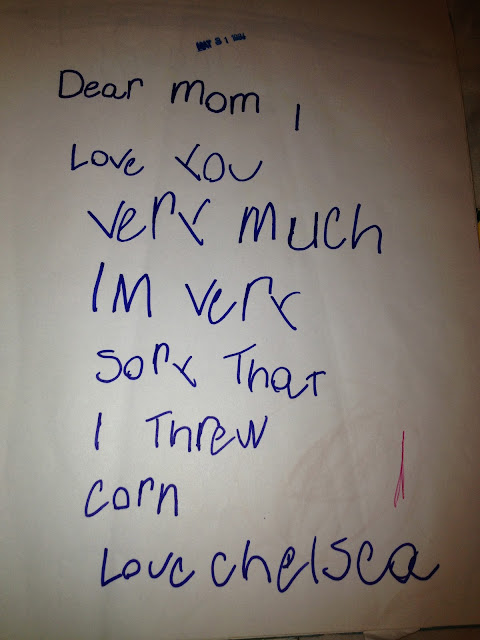 MAY 31
Dear mom I
Love You
very much
IM very
sory That
I Threw
corn
Love chelsea